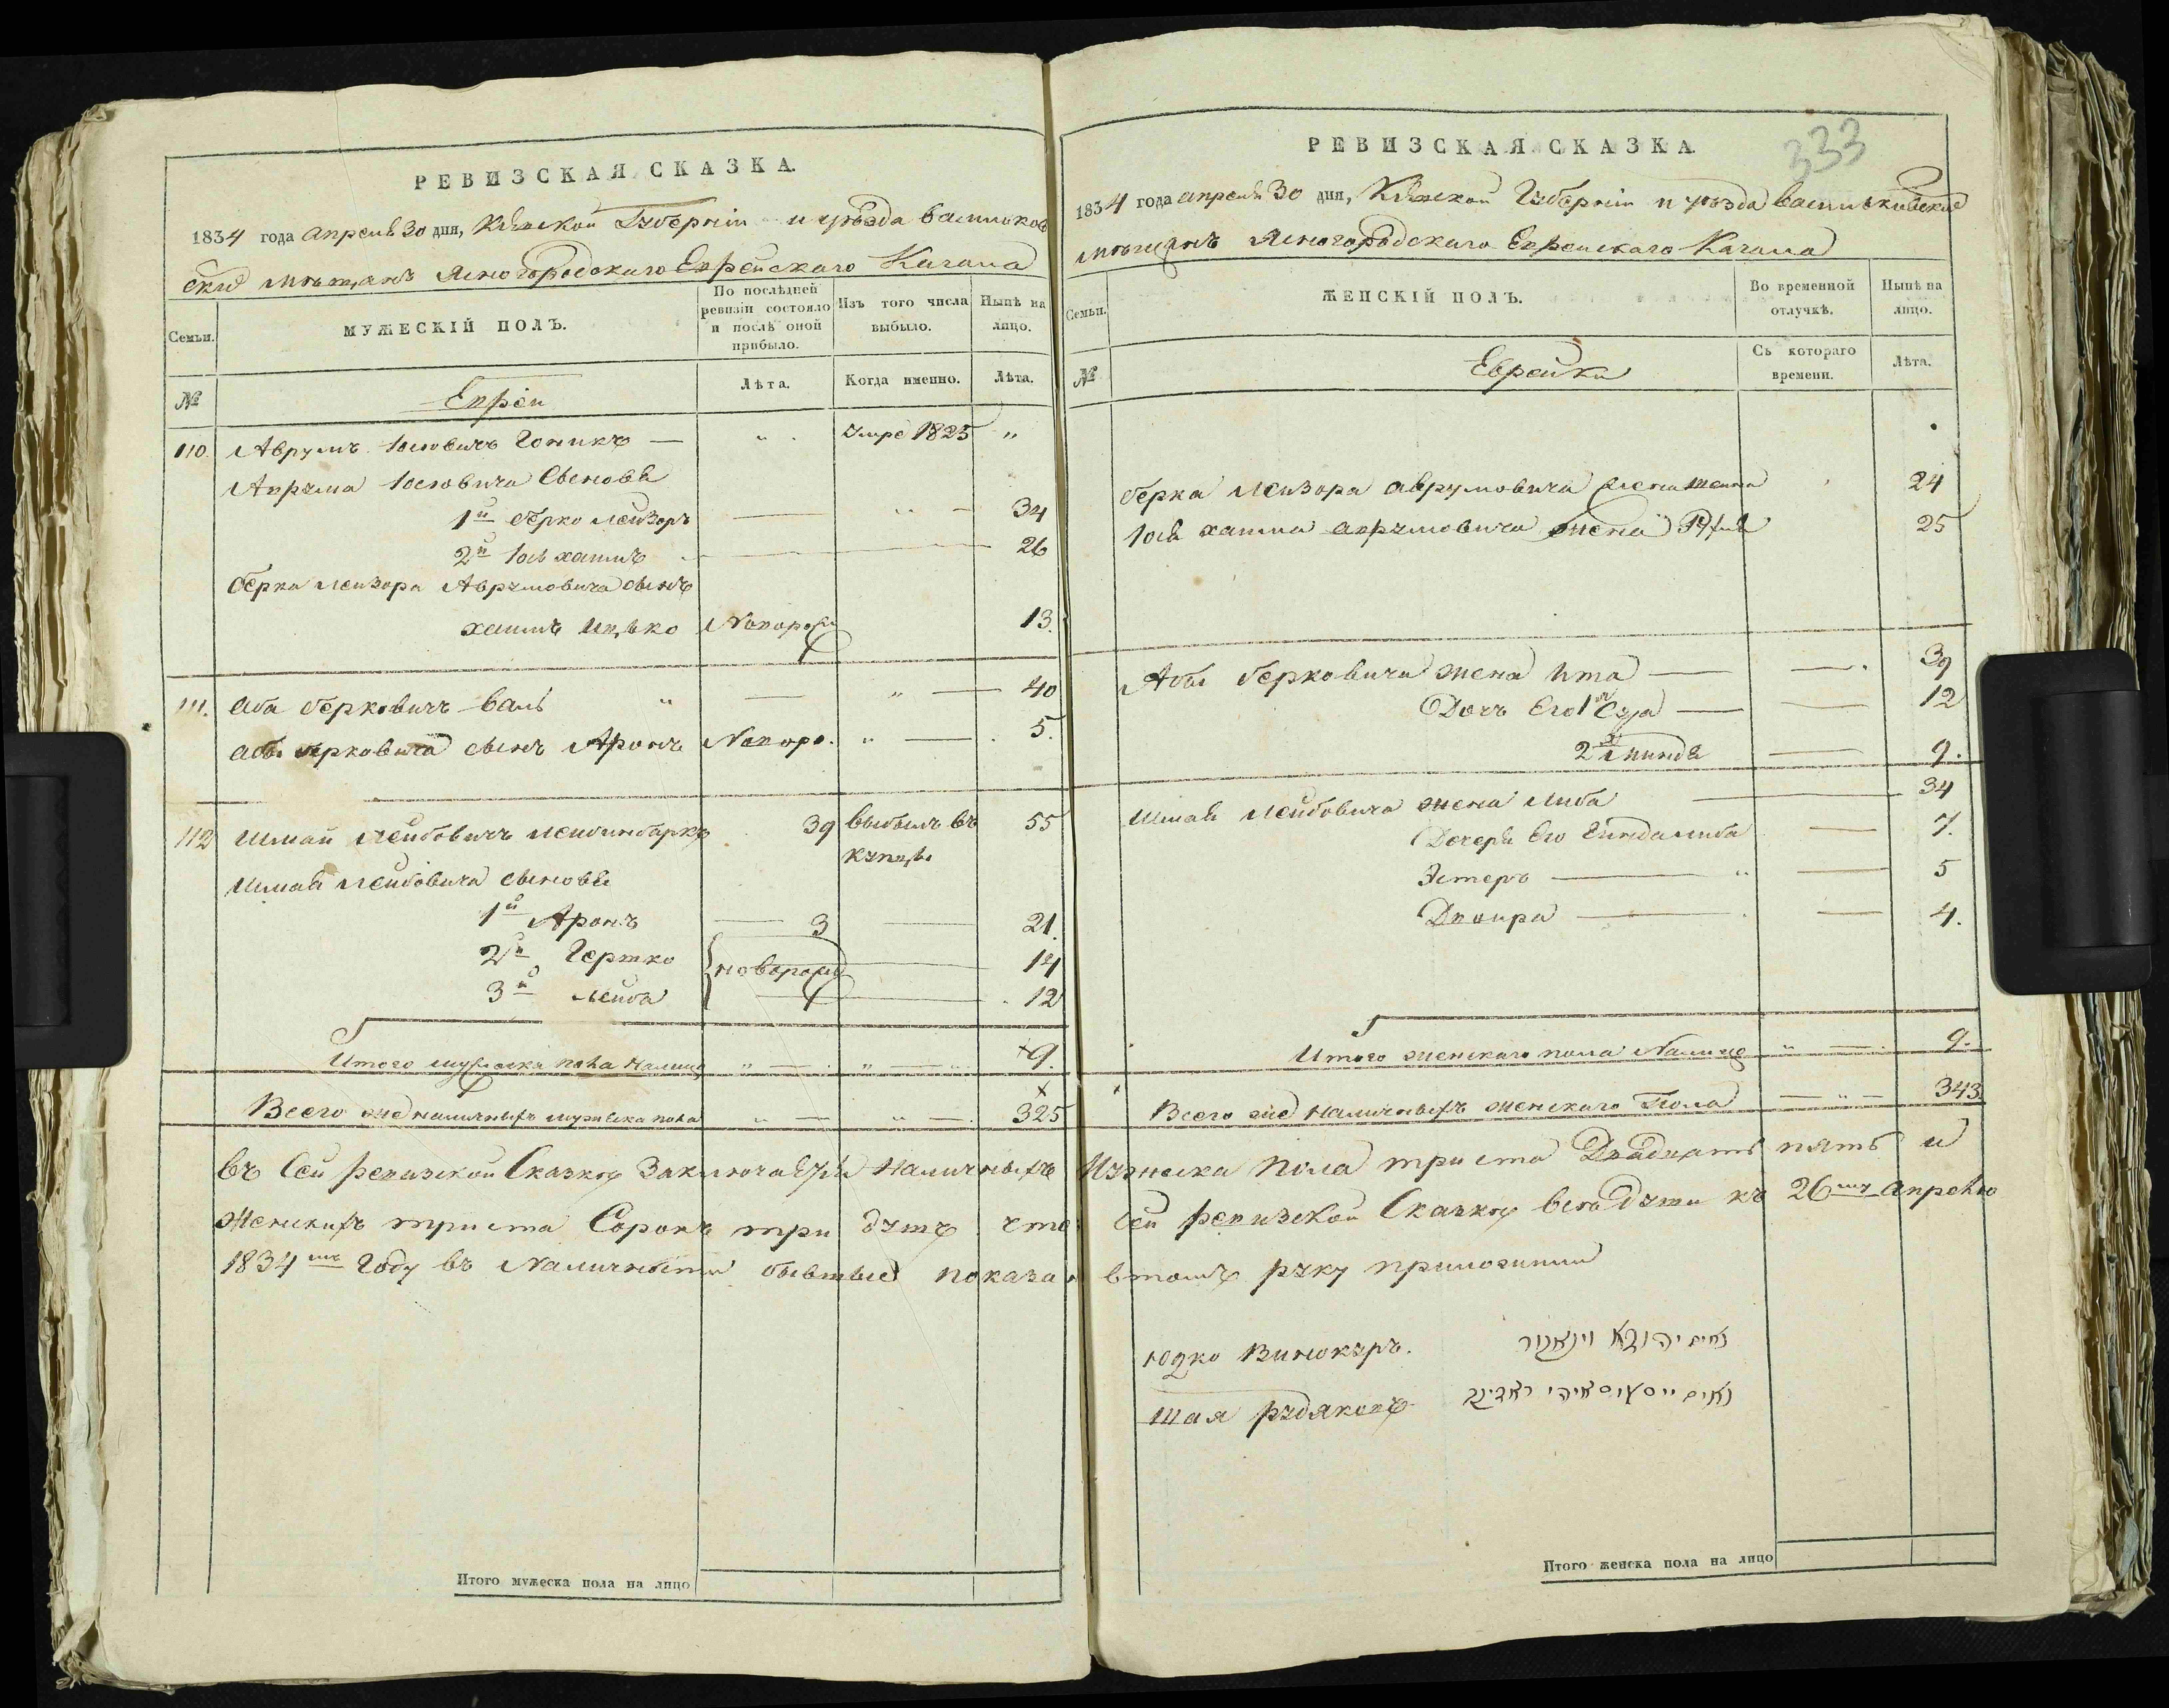 РЕВИЗСКАЯ СКАЗКА.
1834 года апреля 30 дня, Кіевской Губерніи и уѣзда васильков
ские мѣщанъ Ясногородскаго Еврейскаго Кагала
Семьи.
МУЖЕСКІЙ ПОЛЪ.
По послѣдней ревизіи состояло и послѣ оной прибыло.
Изъ того числа выбыло.
Нынѣ на лицо.
№
Евреи
Лѣта.
Когда именно.
Лѣта.
110. Аврумъ Іосіовичъ Гоникъ — " . умре 1825 "
Аврума Іосіовича Сыновья
1й берко леизоръ — " — 34
2й Іось хаимъ — 26
берка леизора Аврумовича сынъ
хаимъ ицько Новорож 13.
111. аба берковичъ валъ " — " — 40
абы берковича сынъ Аронъ Новоро. " — 5.
112 Шмай лейбовичъ 39 выбылъ въ 55
купцы
Шмая лейбовича сыновья
1й Аронъ — 3 — 21.
2й Гершко новорож — 14
3й лейба — 12
Итого мужеска пола налицо " — " — 9.
Всего же наличныхъ мужеска пола " — " — 325
РЕВИЗСКАЯ СКАЗКА.
333
1834 года апреля 30 дня, Кіевской Губерніи и уѣзда васильковские
мѣщанъ Ясногородскаго Еврейскаго Кагала
Семьи.
ЖЕНСКІЙ ПОЛЪ.
Во временной отлучкѣ.
Нынѣ на лицо.
№
Еврейки
Съ котораго времени.
Лѣта.
берка леизора аврумовича жена 24
Іося хаима аврумовича жена 25
Абы берковича жена Ита — — 39
Дочъ Его 1я — — 12
2я — 9.
Шмая лейбовича жена либа — 34
Дочеря Его Гиндалиба — 7.
Эстеръ — " — 5
Двоира — — 4.
Итого женскаго пола Налицо " — 9.
Всего же наличныхъ женскаго Пола — " — 343
въ Сей ревизской Сказке Заключается Наличныхъ Мужеска Пола триста Двадцать пять и
Женскихъ триста Сорокъ три душъ что Сей ревизской Сказке всѣ Души къ 26му апрелю
1834му Году въ Наличности бывшые показан втомъ руку приложили
юдко Винокуръ.
נאום יהודא
шая рудяковъ
נאום
Итого мужеска пола на лицо
Итого женска пола на лицо